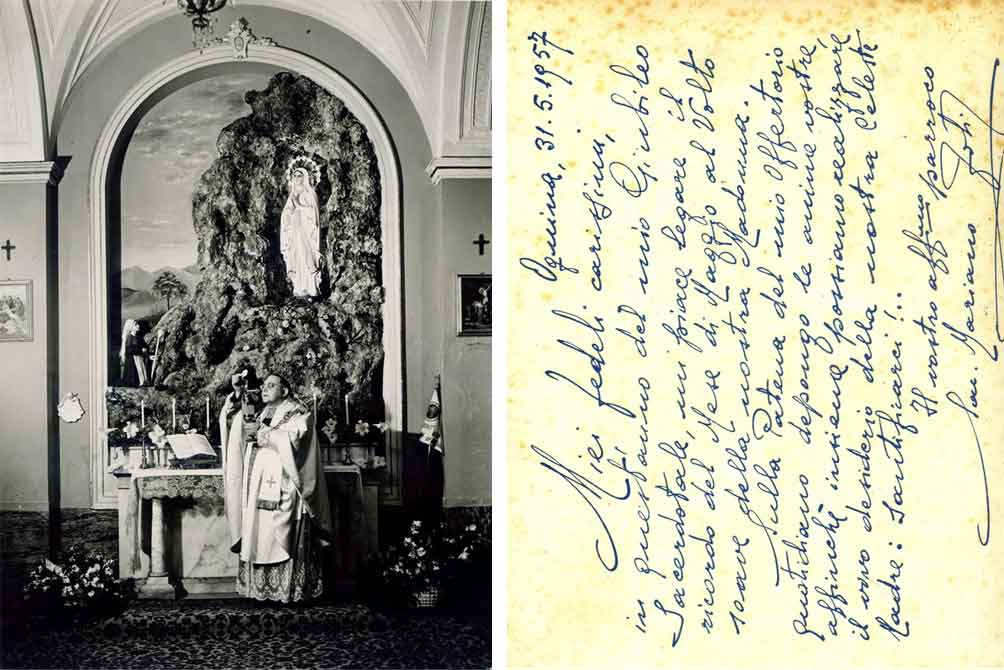 Aquino, 31.5.1957
Miei fedeli carissimi,
in quest'anno del mio Giubileo
Sacerdotale, mi piace legare il
ricordo del Mese di Maggio al Volto
soave della nostra Madonna.
Sulla Patena del mio offertorio
quotidiano depongo le anime vostre
affinchè insieme possiamo realizzare
il vivo desiderio della nostra Celeste
Madre: Santificarci!..
Il vostro aff.mo parroco
Sac. Mariano